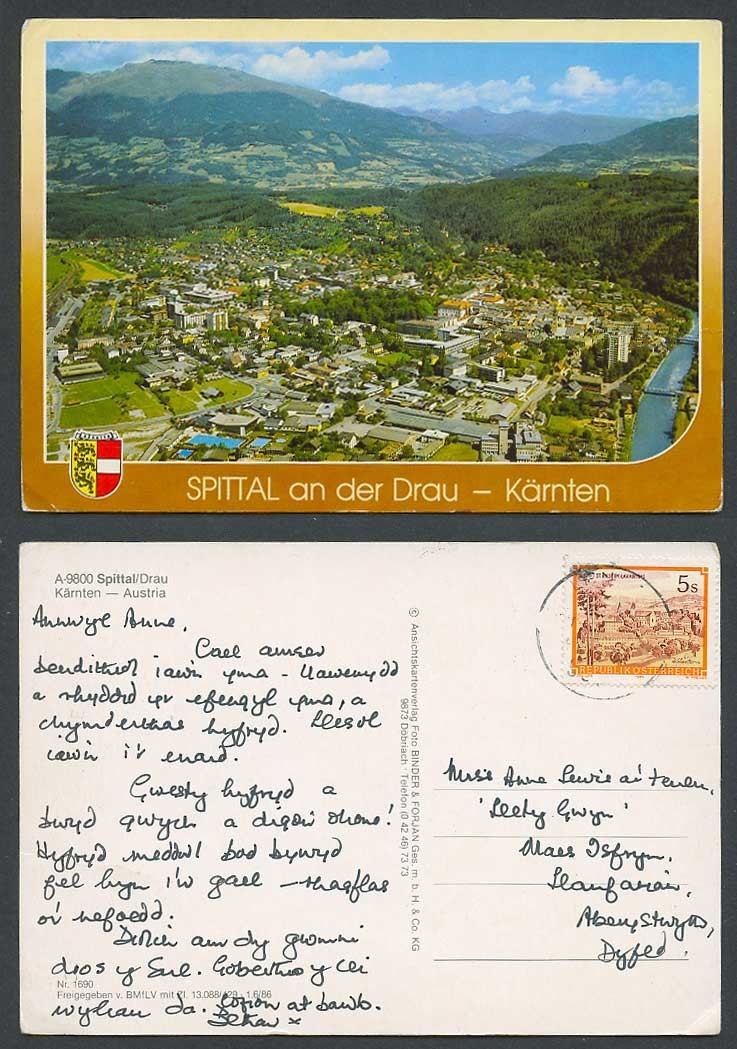 SPITTAL an der Drau – Kärnten
A-9800 Spittal/Drau
Kärnten — Austria
Annwyl Anne,
Cael amser
bendithiol iawn yma - llawenydd
a rhyddid yr efengyl yma, a
chymdeithas hyfryd. Llesol
iawn i'r enaid.
Gwesty hyfryd a
bwyd gwych a digon ohono!
Hyfryd meddwl bod bywyd
fel hyn i'w gael - rhagflas
o'r nefoedd.
Diolch am dy gwmni
dros y Sul. Gobeithio y cei
wyliau da. Cofion at bawb.
Bethan x
Nr. 1690
Freigegeben v. BMfLV mit Zl. 13.088/429 - 1.6/86
© Ansichtskartenverlag Foto BINDER & FORJAN Ges. m. b. H. & Co. KG
9873 Döbriach · Telefon (0 42 46) 73 73
5s
REPUBLIK ÖSTERREICH
Anne Lewis a'i
'Llety Gwyn'
Maes Isfryn,
Llanfarian,
Aberystwyth,
Dyfed.